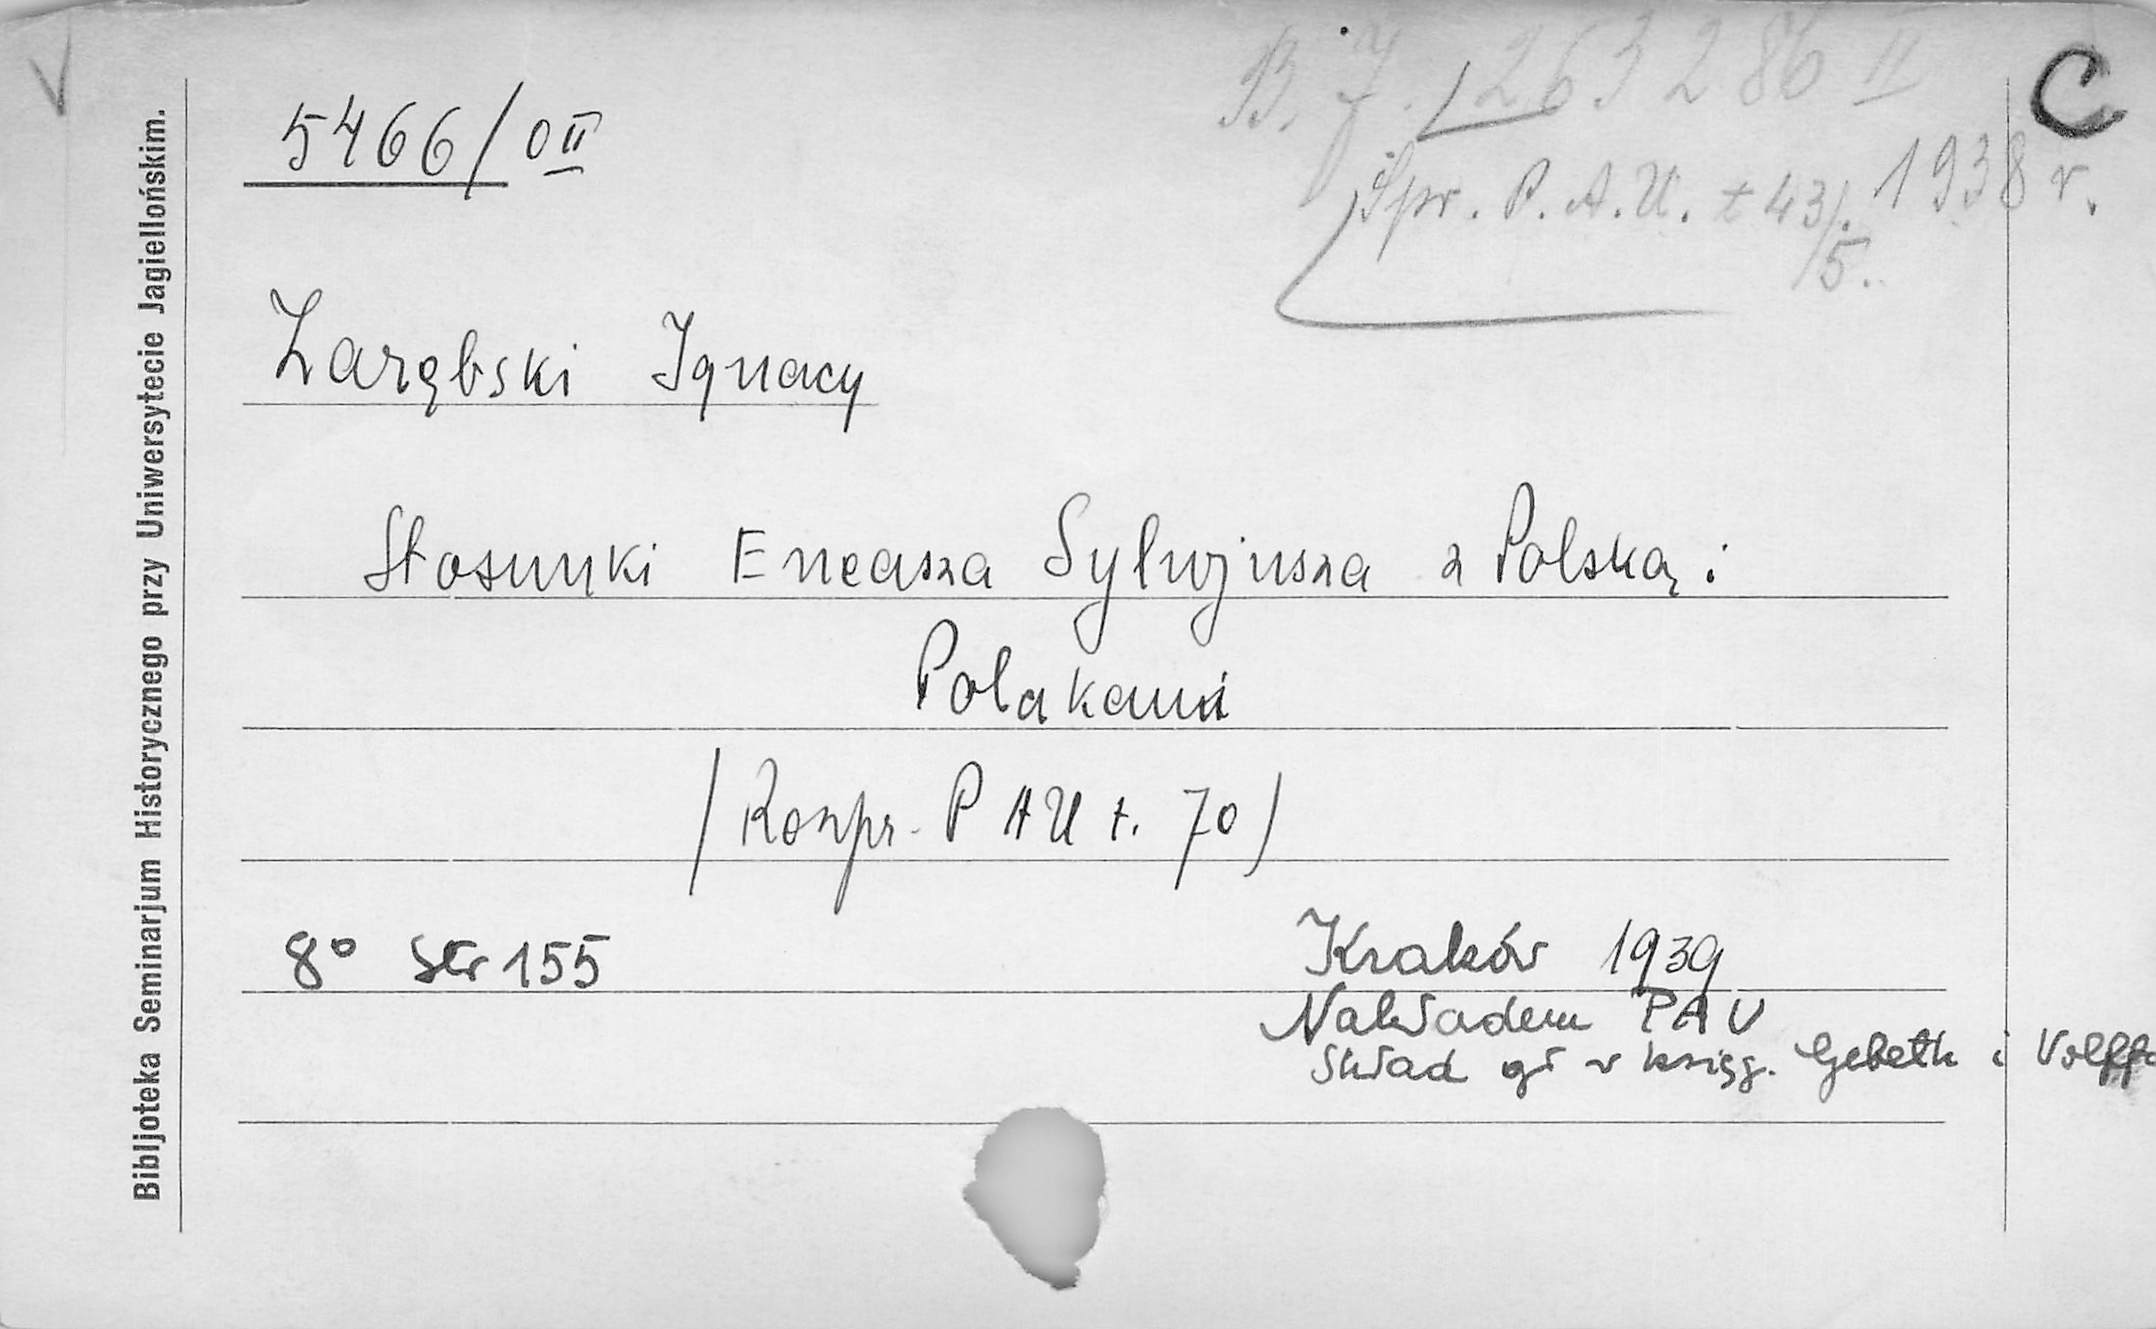 V
B. J. 263286 II
C
5466/0 II
Spr. P. A. U. t 43/5. 1938 r.
Zarębski Ignacy
Stosunki Eneasza Sylwjusza z Polską i
Polakami
/Rozpr. PAU t. 70/
8° str 155
Kraków 1939
Nakładem PAU
Skład gł w księg. Gebeth i Wolffa
Bibljoteka Seminarjum Historycznego przy Uniwersytecie Jagiellońskim.